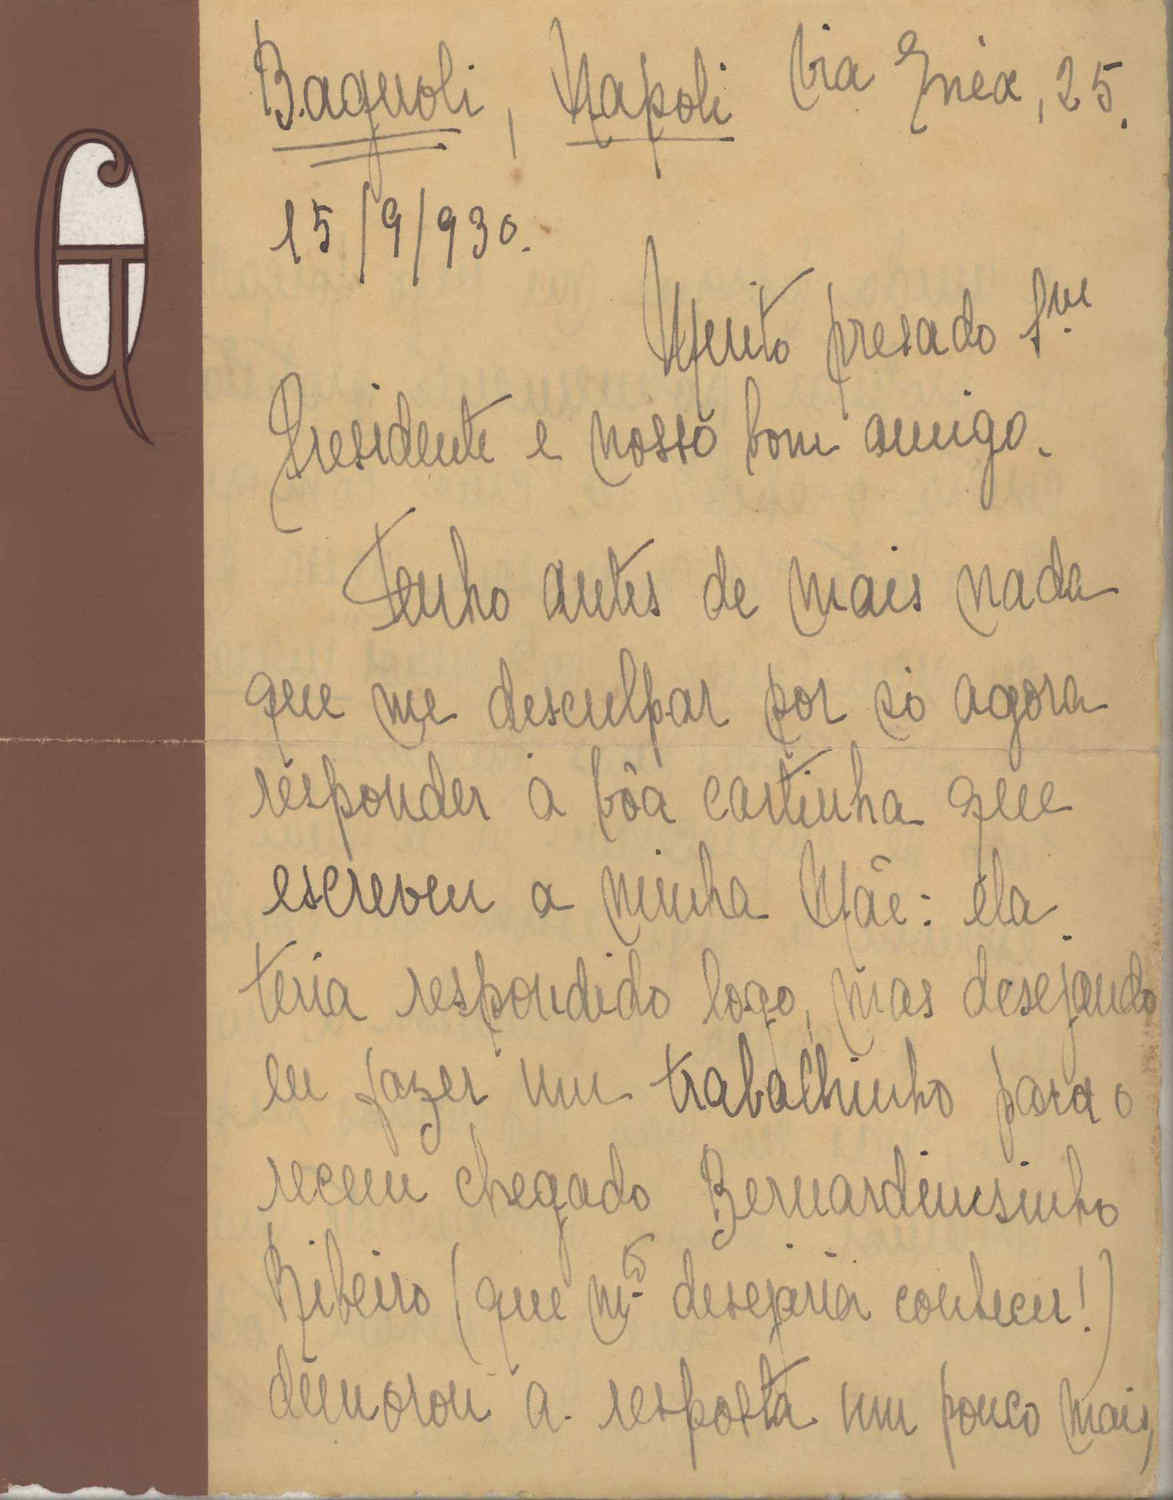 Bagnoli, Napoli Via Enéa, 25.
15/9/930.
Muito presado Snr
Presidente e nosso bom amigo.
Tenho antes de mais nada
que me desculpar por só agora
responder á bôa cartinha que
escreveu a minha Mãe: ela
teria respondido logo, mas desejando
eu fazer um trabalhinho para o
recem chegado Bernardinsinho
Ribeiro (que mto desejaria conhecer!)
demorou a resposta um pouco mais,